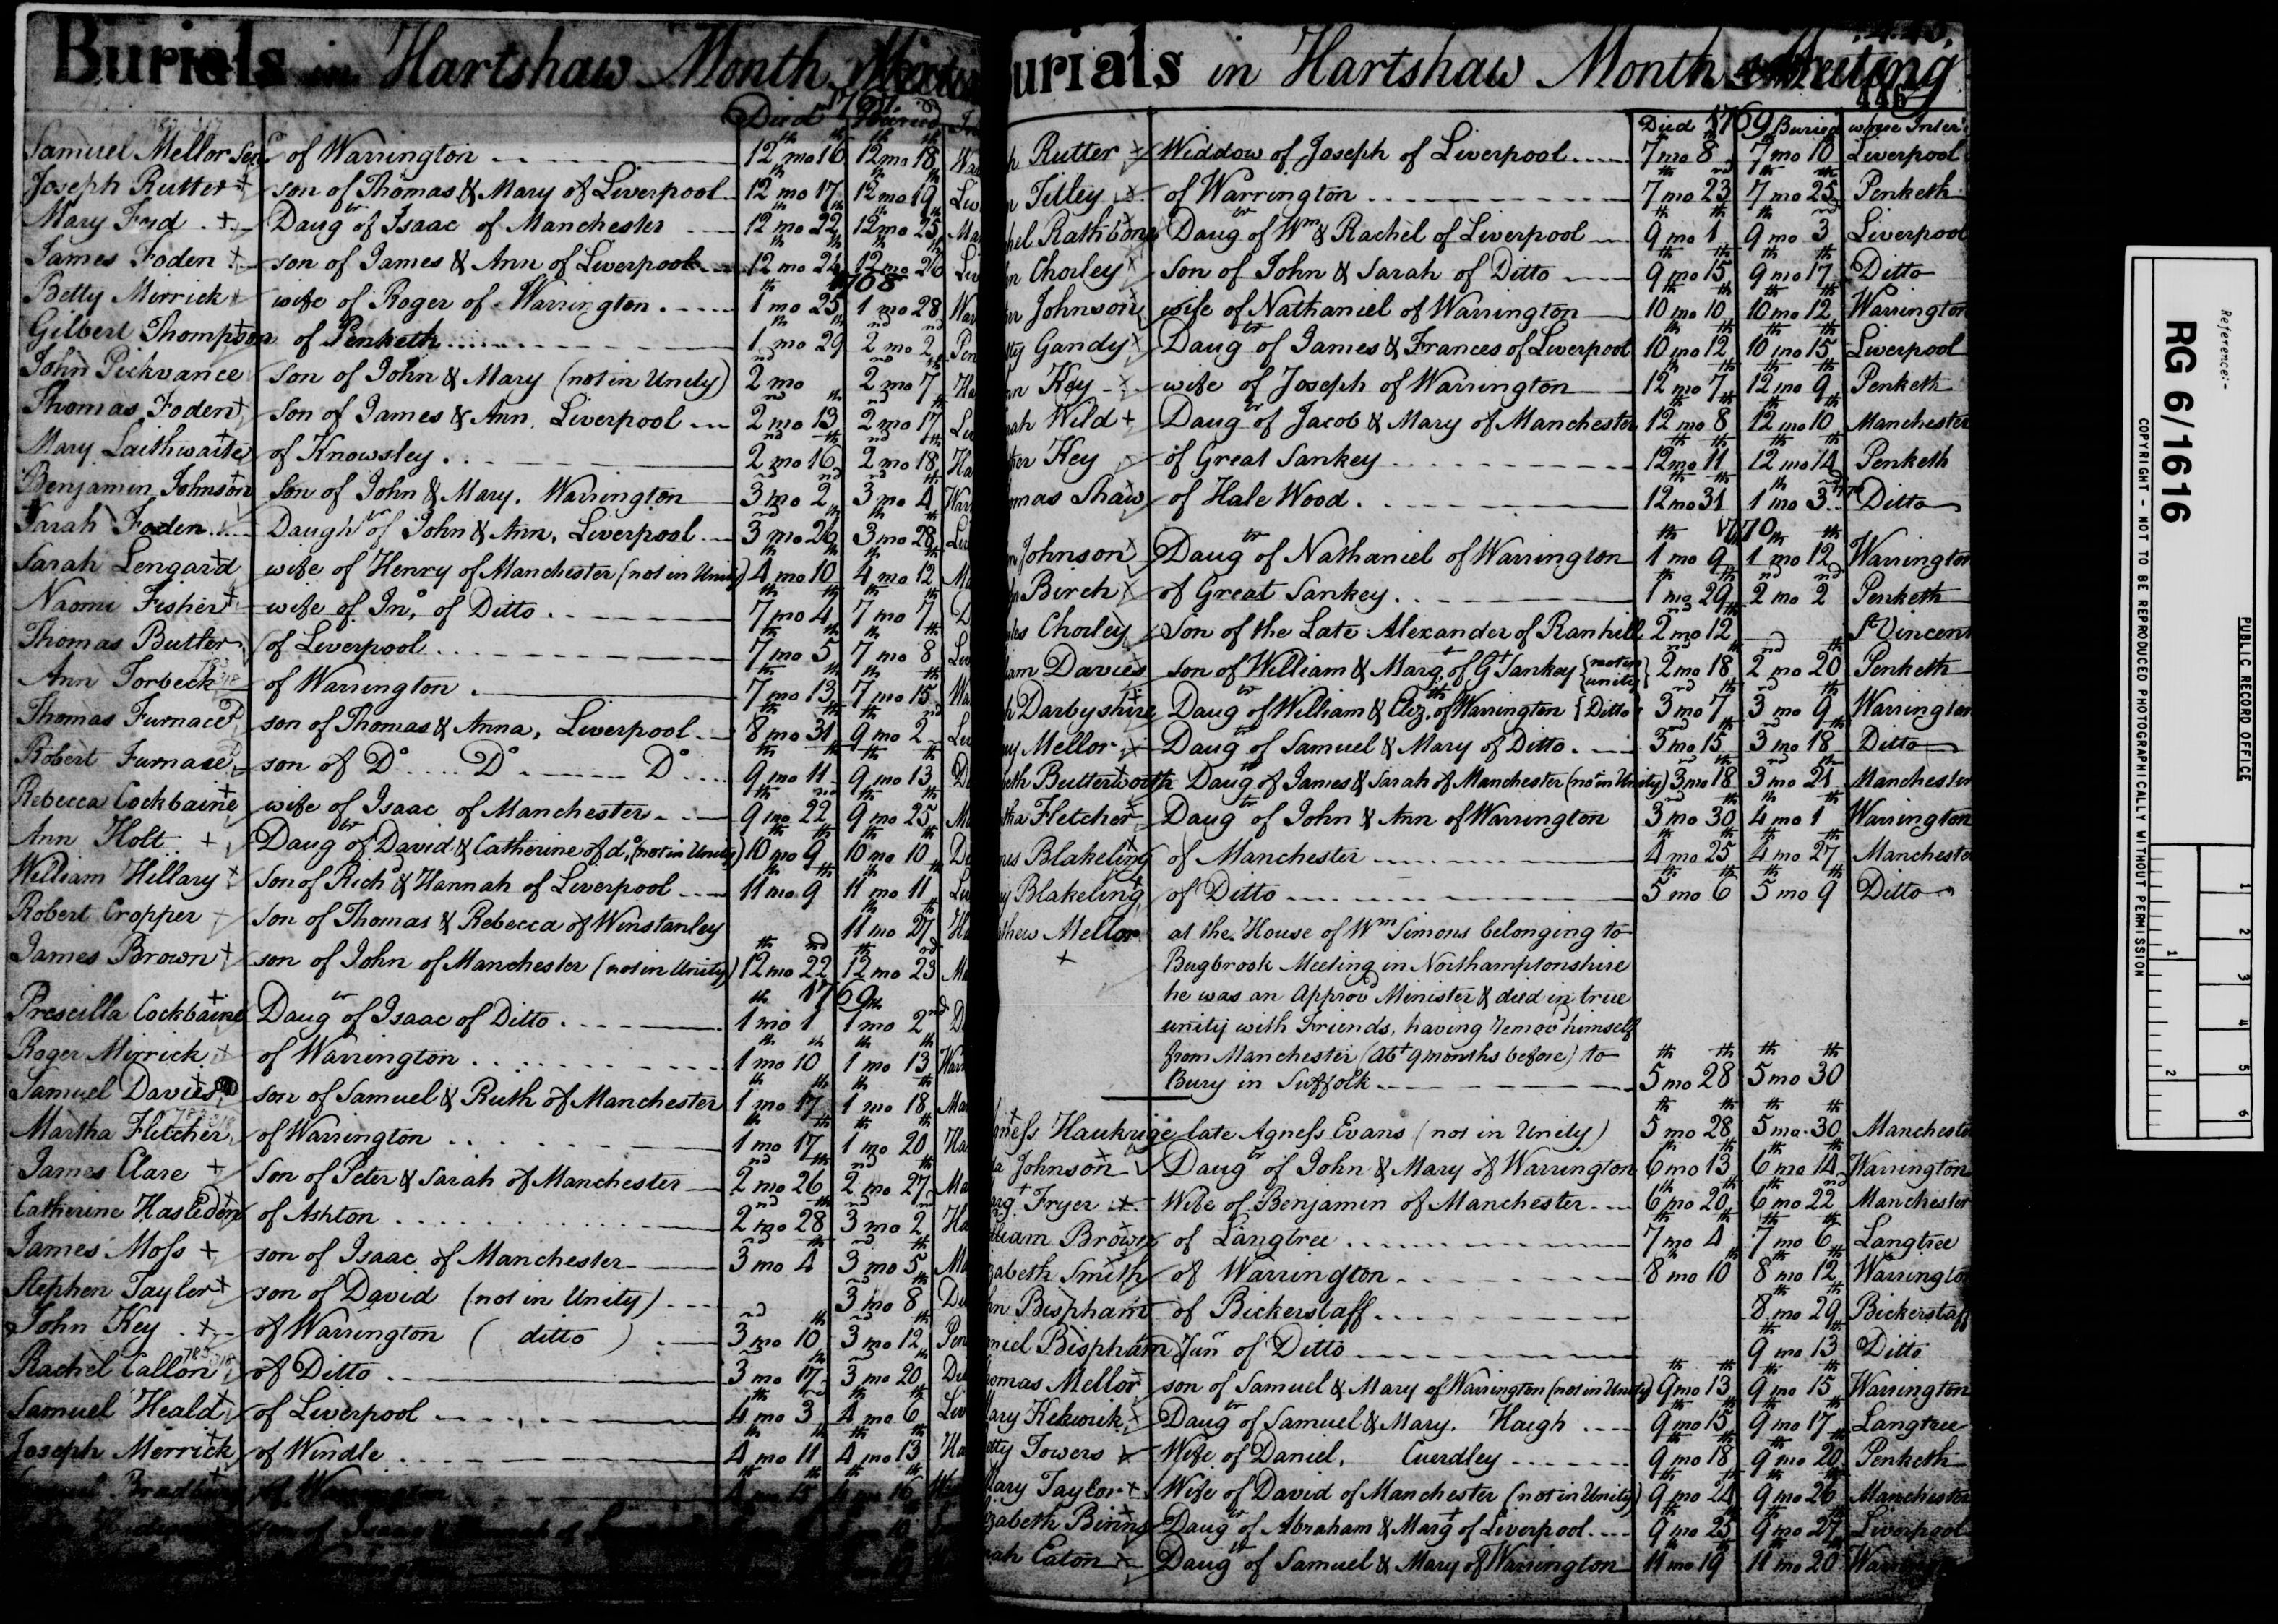 Burials in Hartshaw Month Meetin
Died 1767 Buried
Samuel Mellor Senr of Warrington 12th mo 16th 12th mo 18th Wa
Joseph Rutter son of Thomas & Mary of Liverpool 12th mo 17th 12th mo 19th Liv
Mary Daugtr of Isaac of Manchester 12th mo 22nd 12th mo 25th Ma
James Foden son of James & Ann of Liverpool 12th mo 24th 12th mo 26th Liv
1768
Betty Mirrick wife of Roger of Warrington 1 mo 25 1 mo 28 War
Gilbert Thompson of Penketh 1th mo 29th 2nd mo 2nd Pen
John Pickvance son of John & Mary (not in Unity) 2nd mo 2nd mo 7th Ha
Thomas Foden Son of James & Ann, Liverpool 2nd mo 13th 2nd mo 17th Liv
Mary Laithwaite of Knowsley 2nd mo 16th 2nd mo 18th Ha
Benjamin Johnson Son of John & Mary, Warrington 3rd mo 2nd 3rd mo 4th War
Sarah Foden Daughtr of John & Ann, Liverpool 3 mo 26 3 mo 28 Liv
Sarah Lengard wife of Henry of Manchester (not in Unity) 4th mo 10th 4th mo 12th Ma
Naomi Fisher wife of Jno. of Ditto 7th mo 4th 7th mo 7th D
Thomas Butler of Liverpool 7th mo 5th 7th mo 8th Liv
Ann Torbeck of Warrington 7th mo 13th 7th mo 15th Wa
Thomas Furnace son of Thomas & Anna, Liverpool 8th mo 31 9th mo 2nd Liv
Robert Furnace son of Do Do Do 9th mo 11th 9th mo 13th Do
Rebecca Cockbaine wife of Isaac of Manchester 9th mo 22nd 9th mo 25th Ma
Ann Holt Daugtr of David & Catherine of do. (not in Unity) 10th mo 9th 10th mo 10th Di
William Hillary Son of Richd & Hannah of Liverpool 11 mo 9 11 mo 11 Liv
Robert Cropper Son of Thomas & Rebecca of Winstanley 11th mo 27th Ha
James Brown son of John of Manchester (not in Unity) 12th mo 22nd 12th mo 23rd Ma
1769
Prescilla Cockbaine Daugtr of Isaac of Ditto 1th mo 1 1th mo 2nd Di
Roger Mirrick of Warrington 1th mo 10th 1th mo 13th Warr
Samuel Davies son of Samuel & Ruth of Manchester 1th mo 17th 1th mo 18th Ma
Martha Fletcher of Warrington 1th mo 17th 1th mo 20th Ha
James Clare Son of Peter & Sarah of Manchester 2nd mo 26th 2nd mo 27th Ma
Catherine Hasledon of Ashton 2nd mo 28th 3rd mo 2nd Ha
James Moss son of Isaac of Manchester 3 mo 4 3 mo 5 Ma
Stephen Taylor son of David (not in Unity) 3 mo 8 Di
John Key of Warrington ( ditto ) 3 mo 10 3 mo 12 Pen
Rachel Callon of Ditto 3 mo 17 3 mo 20 Di
Samuel Heald of Liverpool 4th mo 3rd 4th mo 6th Liv
Joseph Merrick of Windle 4th mo 11th 4th mo 13th Ha
of Warrington 4 mo 15 4 mo 16
urials in Hartshaw Month Meeting
446
Died 1769 Buried were Inter'd
h Rutter Widdow of Joseph of Liverpool 7 mo 8 7 mo 10 Liverpool
n Titley of Warrington 7th mo 23rd 7th mo 25th Penketh
hel Rathbone Daugtr of Wm & Rachel of Liverpool 9th mo 1 9th mo 3rd Liverpool
n Chorley Son of John & Sarah of Ditto 9th mo 15th 9th mo 17th Ditto
er Johnson wife of Nathaniel of Warrington 10th mo 10th 10th mo 12th Warrington
tty Gandy Daugtr of James & Frances of Liverpool 10th mo 12th 10th mo 15th Liverpool
nn Key wife of Joseph of Warrington 12th mo 7th 12th mo 9th Penketh
ah Wild Daugtr of Jacob & Mary of Manchester 12th mo 8th 12th mo 10th Manchester
ther Key of Great Sankey 12th mo 11th 12th mo 14th Penketh
omas Shaw of Hale Wood 12 mo 31 1 mo 3 Ditto
1770
n Johnson Daugtr of Nathaniel of Warrington 1 mo 9 1 mo 12 Warrington
n Birch of Great Sankey 1th mo 29th 2nd mo 2nd Penketh
les Chorley Son of the Late Alexander of Ranhill 2nd mo 12th St Vincent
iam Davies son of William & Margt. of Gt Sankey {not in unity} 2nd mo 18th 2nd mo 20th Penketh
h Darbyshire Daugtr of William & Elizth. of Warrington {Ditto 3rd mo 7th 3rd mo 9th Warrington
ny Mellor Daugtr of Samuel & Mary of Ditto 3rd mo 15th 3rd mo 18th Ditto
beth Butterworth Daugtr of James & Sarah of Manchester (not in Unity) 3 mo 18 3 mo 21 Manchester
tha Fletcher Daugtr of John & Ann of Warrington 3rd mo 30th 4th mo 1 Warrington
es Blakeling of Manchester 4th mo 25th 4th mo 27th Mancheste
y Blakeling of Ditto 5th mo 6th 5th mo 9th Ditto
thew Mellor at the House of Wm Simons belonging to
Bugbrook Meeting in Northamptonshire
he was an Approvd Minister & died in true
unity with Friends, having remov'd himself
from Manchester (abt 9 months before) to
Bury in Suffolk 5th mo 28th 5th mo 30th
gness Haukrige late Agness Evans (not in Unity) 5th mo 28th 5th mo 30th Mancheste
a Johnson Daugtr of John & Mary of Warrington 6th mo 13th 6th mo 14th Warrington
arg.t Fryer Wife of Benjamin of Manchester 6th mo 20th 6th mo 22nd Manchester
lliam Brown of Langtree 7th mo 4th 7th mo 6th Langtree
zabeth Smith of Warrington 8th mo 10th 8th mo 12th Warringto
hn Bispham of Bickerstaff 8th mo 29th Bickerstaff
niel Bispham Junr of Ditto 9th mo 13 Ditto
homas Mellor son of Samuel & Mary of Warrington (not in Unity) 9th mo 13th 9th mo 15th Warrington
ary Kekwick Daugtr of Samuel & Mary. Haigh 9th mo 15th 9th mo 17th Langtree
etty Towers Wife of Daniel, Cuerdley 9th mo 18th 9th mo 20th Penketh
Mary Taylor Wife of David of Manchester (not in Unity) 9th mo 24th 9th mo 26th Manchester
zabeth Binns Daugtr of Abraham & Margt of Liverpool 9th mo 25th 9th mo 27th Liverpool
rah Eaton Daugtr of Samuel & Mary of Warrington 11th mo 19th 11th mo 20th
PUBLIC RECORD OFFICE
1 2 3 4 5 6
1 2
Reference:-
RG 6/1616
COPYRIGHT - NOT TO BE REPRODUCED PHOTOGRAPHICALLY WITHOUT PERMISSION